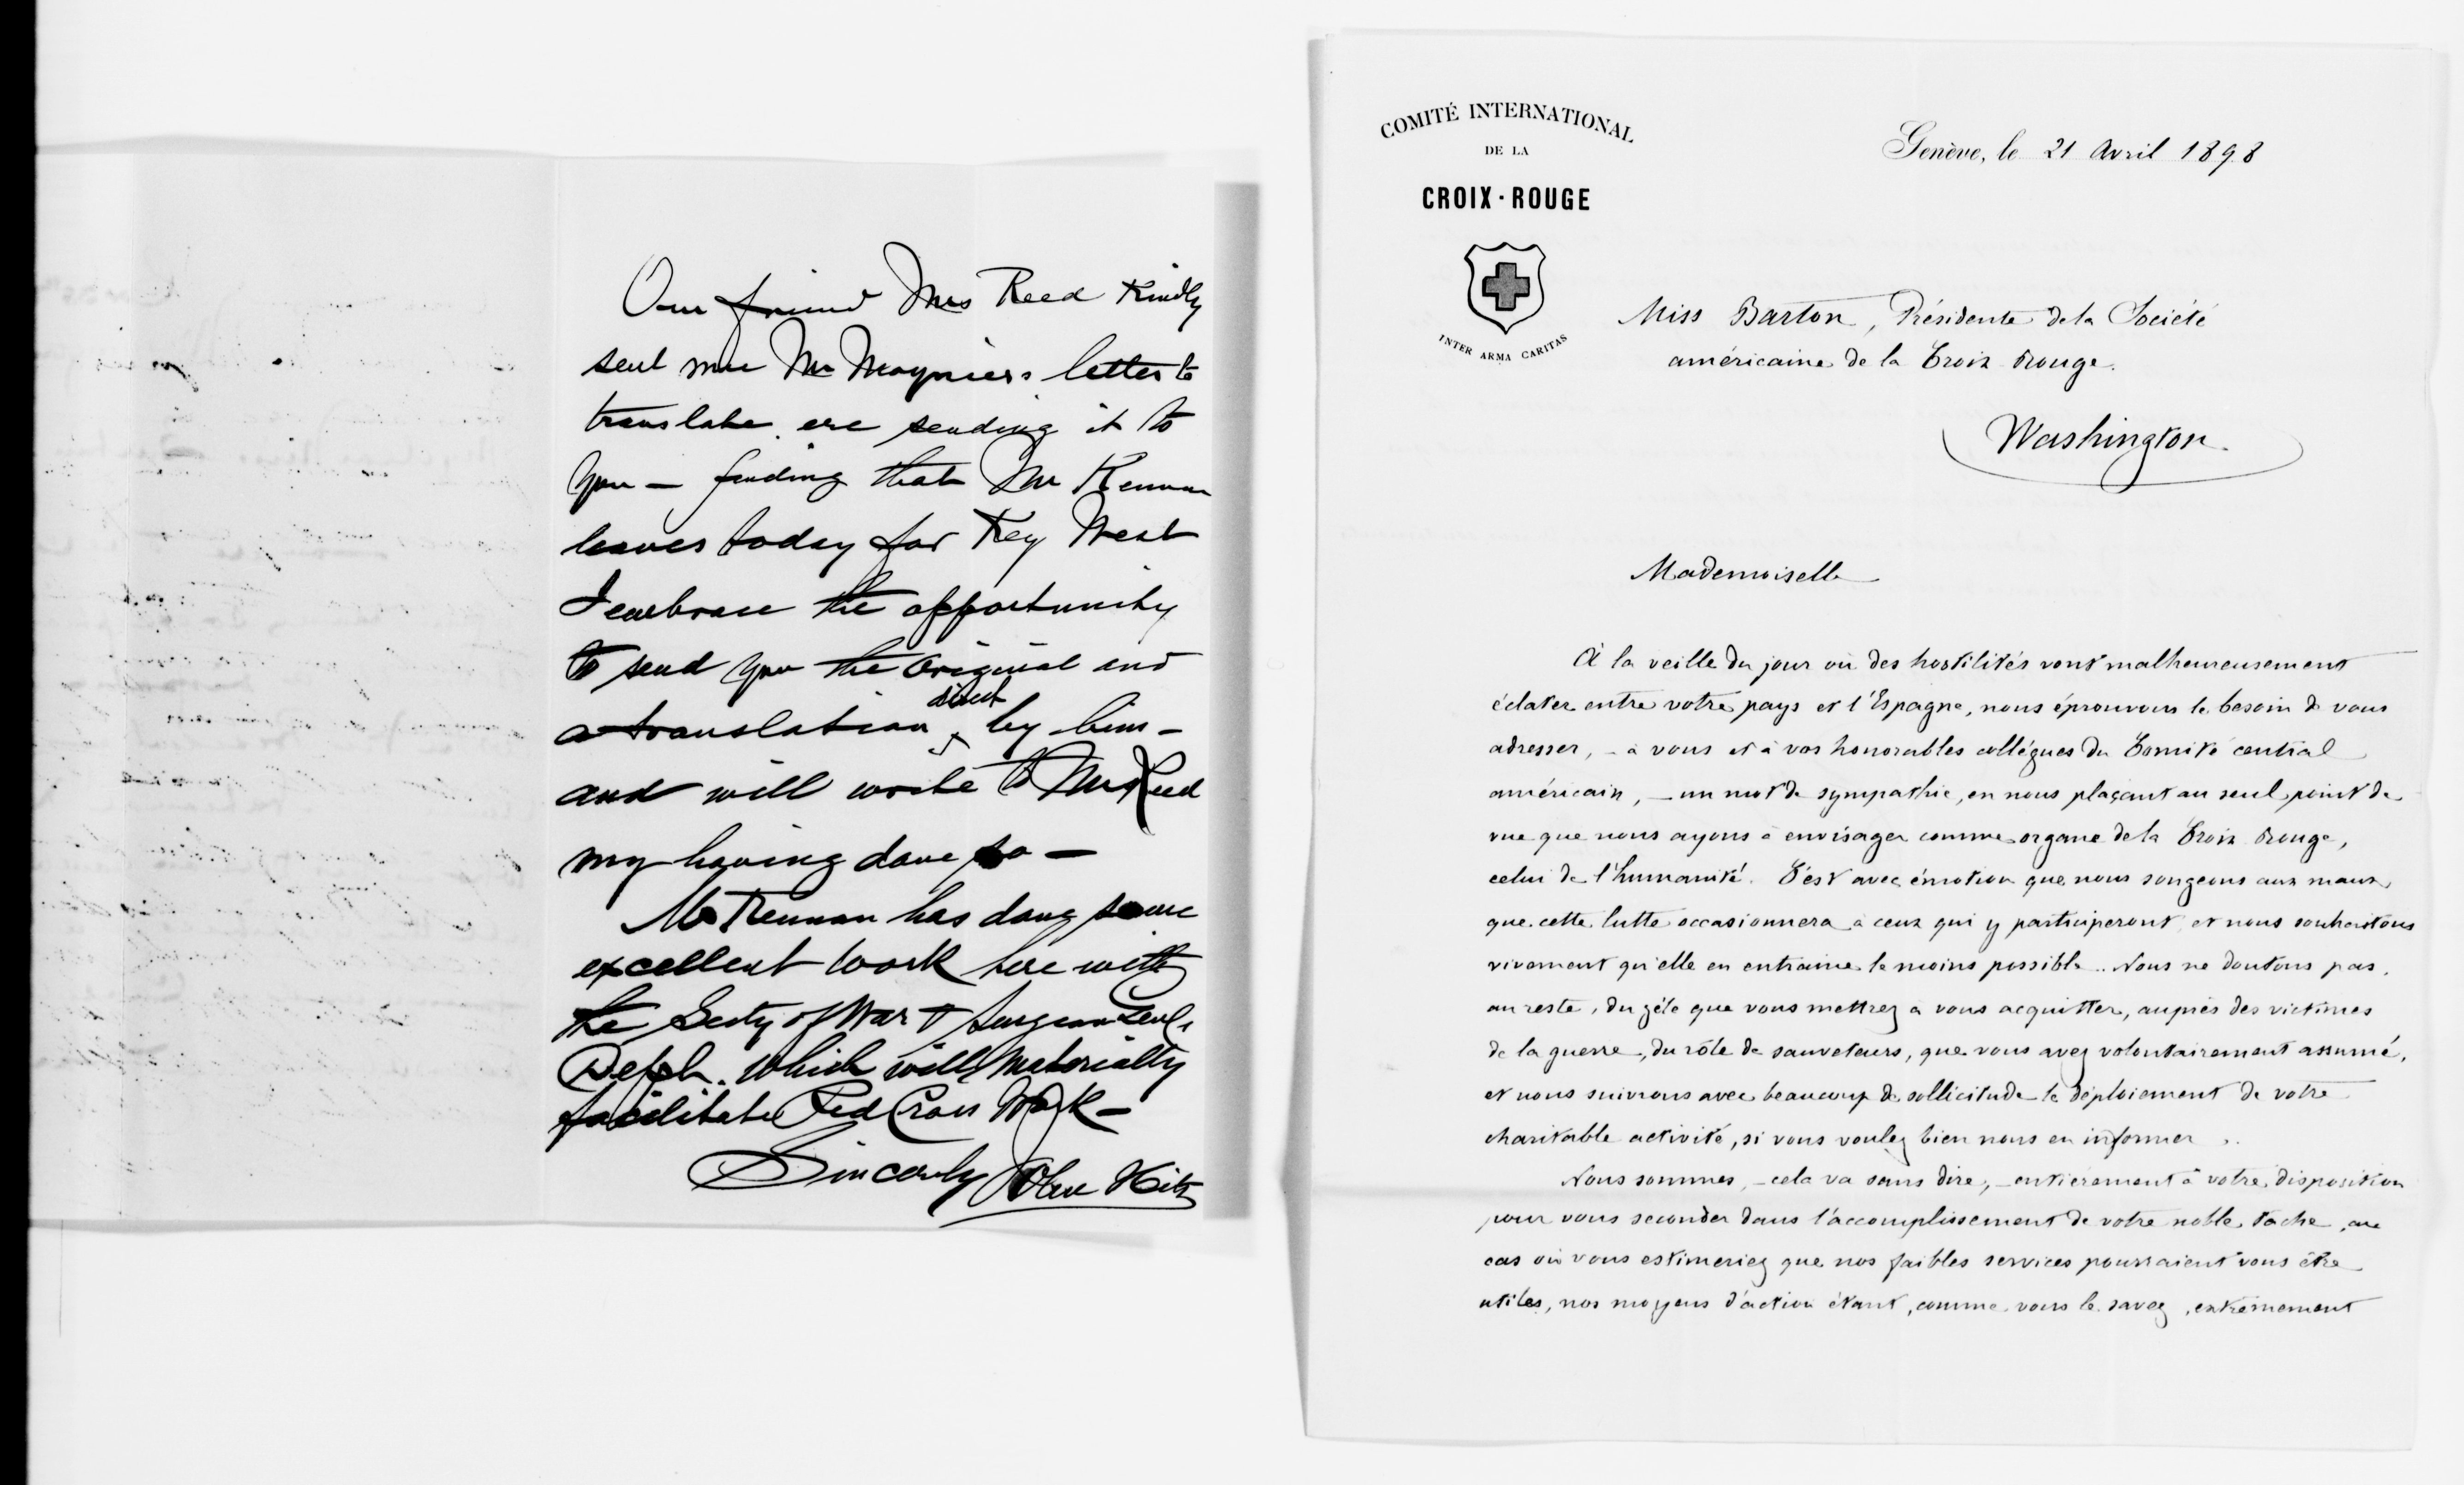 Our friend Mrs Reed kindly
sent me Mr Moyniers letter to
translate ere sending it to
you — finding that Mr Kennan
leaves today for Key West
I embrace the opportunity
to send you the original and
a translation direct by him —
and will write to Mrs Reed
my having done so —
Mr Kennan has done some
excellent work here with
the Secty of War & Surgeon Genls
Dept. which will materially
facilitate Red Cross Work —
Sincerely John Hitz
COMITÉ INTERNATIONAL
DE LA
CROIX-ROUGE
INTER ARMA CARITAS
Genève, le 21 Avril 1898
Miss Barton, Présidente de la Société
américaine de la Croix Rouge.
Washington.
Mademoiselle
À la veille du jour où des hostilités vont malheureusement
éclater entre votre pays et l'Espagne, nous éprouvons le besoin de vous
adresser, – à vous et à vos honorables collègues du Comité central
américain, – un mot de sympathie, en nous plaçant au seul point de
vue que nous ayons à envisager comme organe de la Croix Rouge,
celui de l'humanité. C'est avec émotion que nous songeons aux maux
que cette lutte occasionnera à ceux qui y participeront et nous souhaitons
vivement qu'elle en entraine le moins possible. Nous ne doutons pas,
au reste, du zèle que vous mettrez à vous acquitter, auprès des victimes
de la guerre, du rôle de sauveteurs, que vous avez volontairement assumé,
et nous suivrons avec beaucoup de sollicitude le déploiement de votre
charitable activité, si vous voulez bien nous en informer.
Nous sommes, – cela va sans dire, – entièrement à votre disposition
pour vous seconder dans l'accomplissement de votre noble tache, au
cas où vous estimeriez que nos faibles services pourraient vous être
utiles, nos moyens d'action étant, comme vous le savez, extrêmement